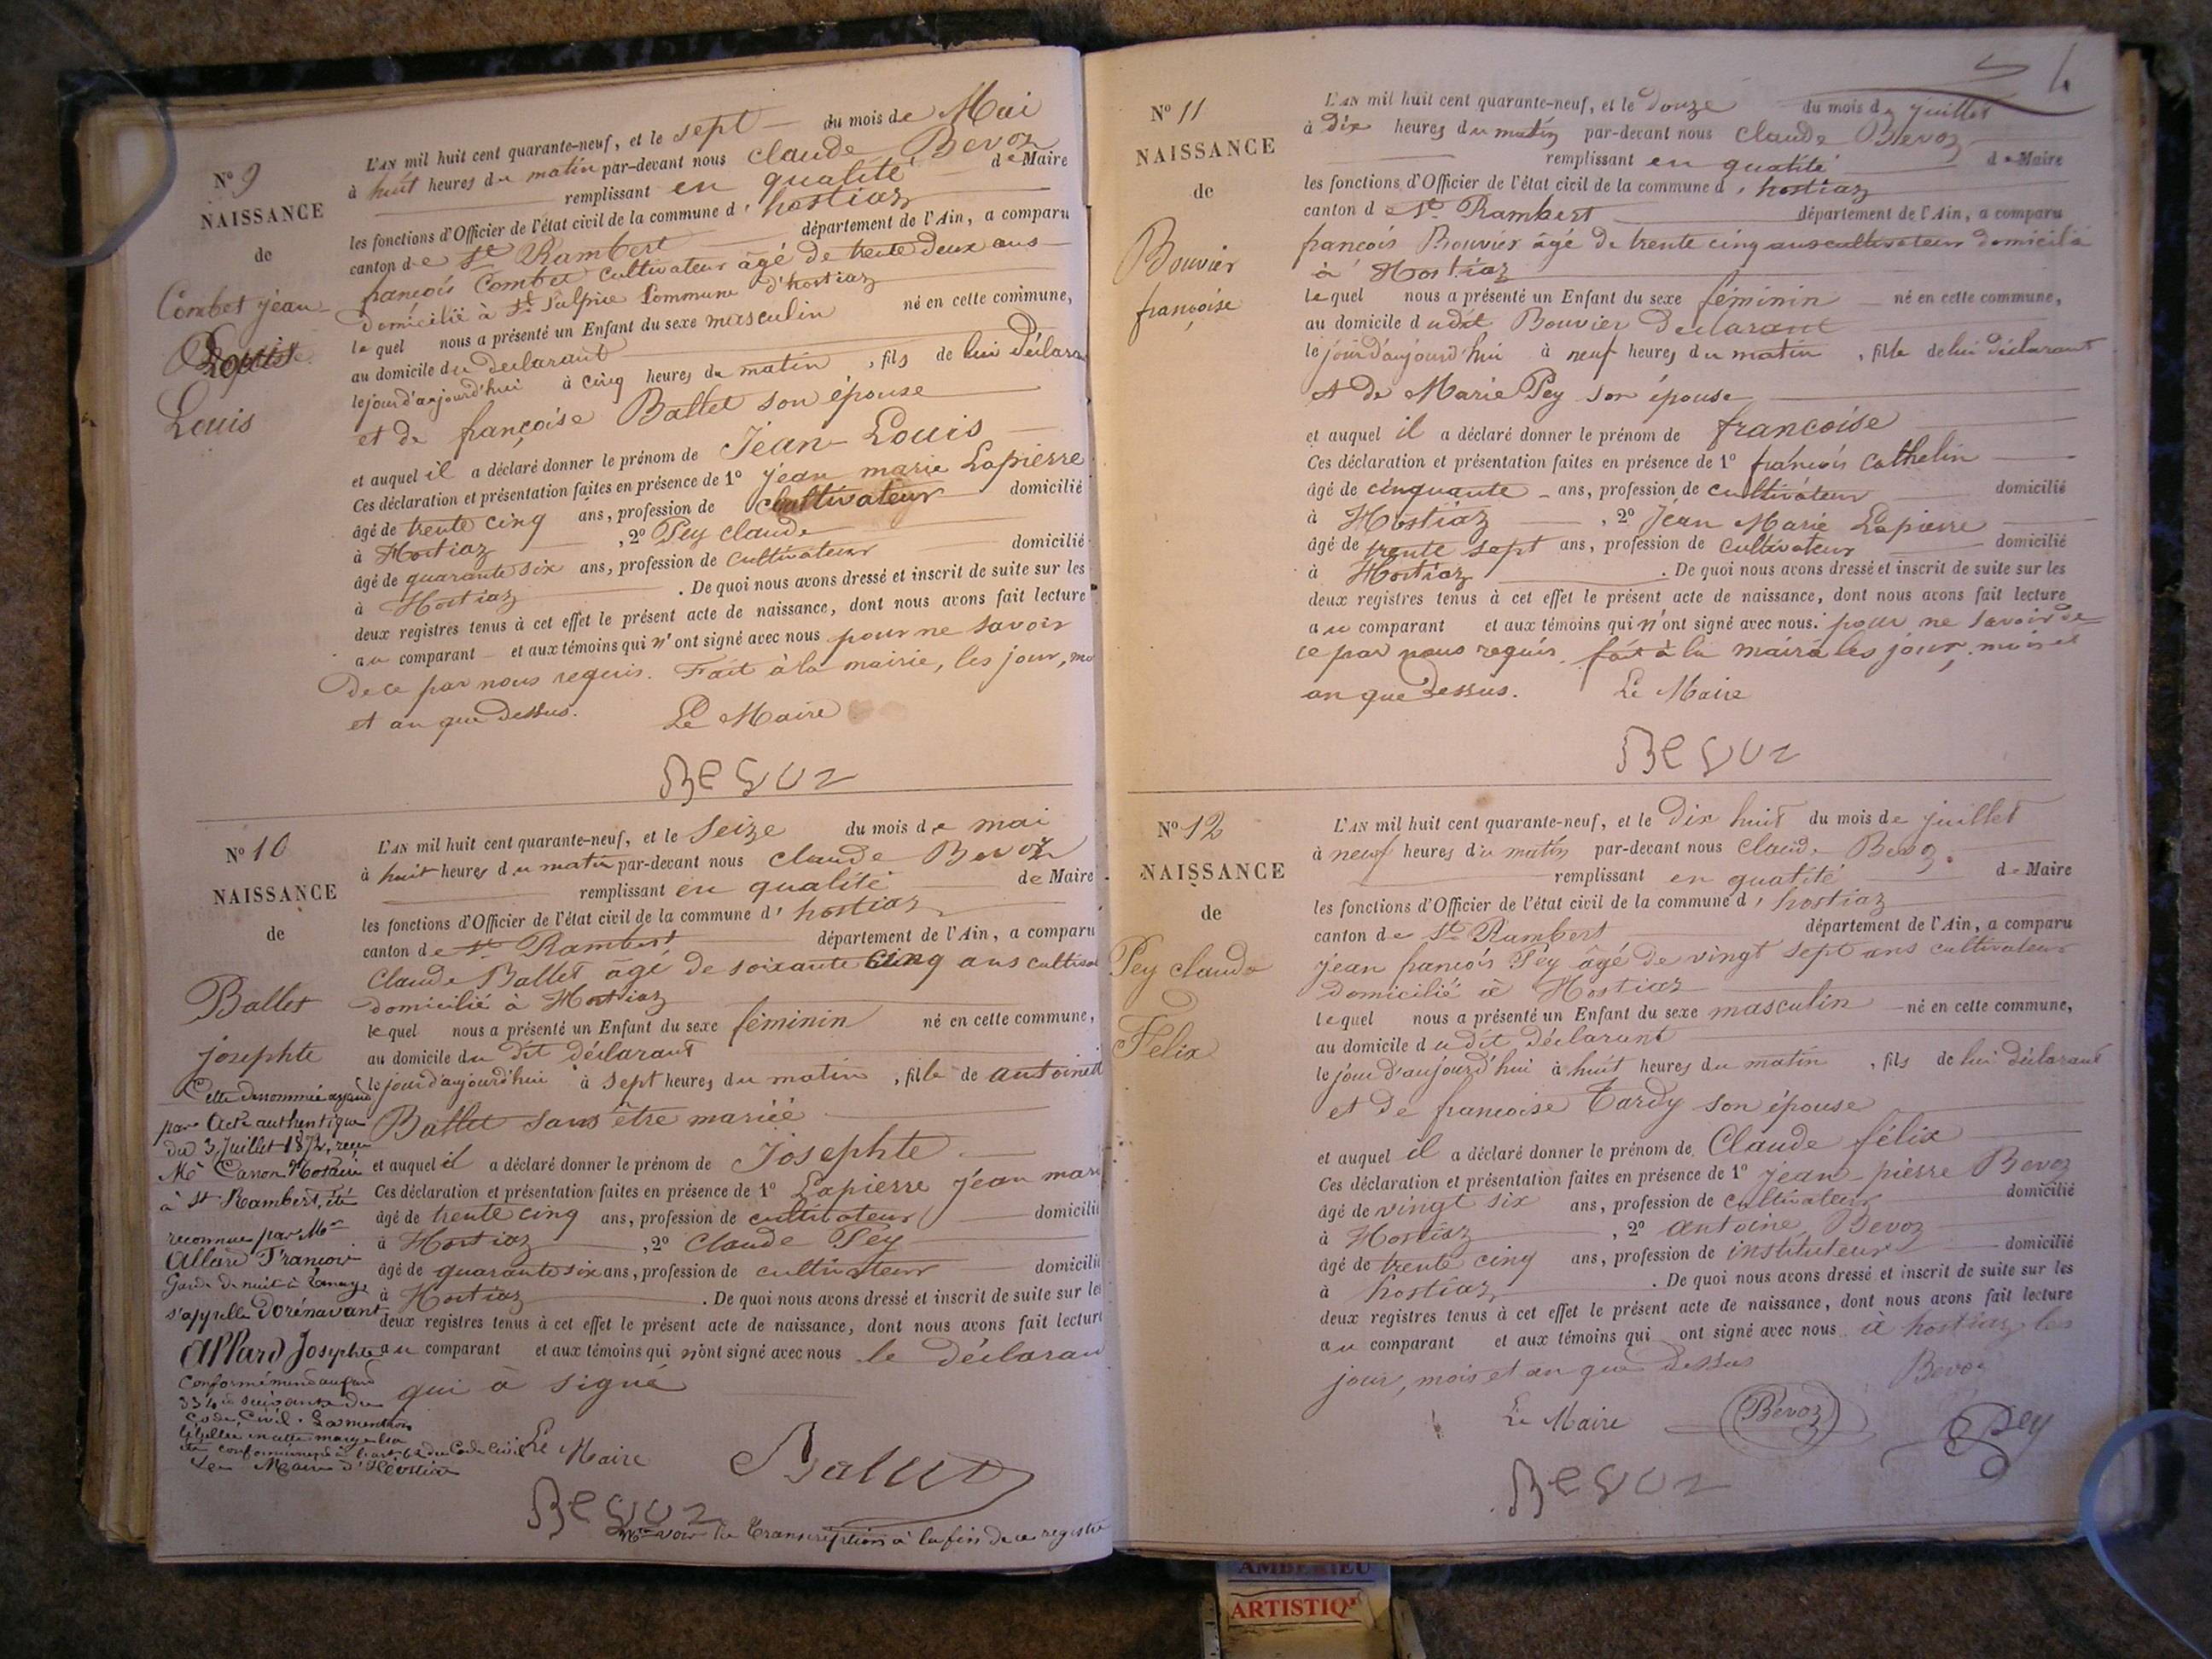 N° 9
NAISSANCE
de
Combet jean
Louis
L'AN mil huit cent quarante-neuf, et le sept du mois de Mai
à huit heures du matin par-devant nous claude Bevoz
remplissant en qualité de Maire
les fonctions d'Officier de l'état civil de la commune d' hostiaz
canton de St Rambert département de l'Ain, a comparu
françois Combet cultivateur âgé de trente deux ans
domicilié à St Sulpice Commune d'hostiaz
lequel nous a présenté un Enfant du sexe masculin né en cette commune,
au domicile du declarant
le jour d'aujourd'hui à cinq heures du matin, fils de lui déclara
et de françoise Ballet son épouse
et auquel il a déclaré donner le prénom de Jean-Louis
Ces déclaration et présentation faites en présence de 1° jean marie Lapierre
âgé de trente cinq ans, profession de cultivateur domicilié
à Hostiaz, 2° Pey claude
âgé de quarante six ans, profession de cultivateur domicilié
à Hostiaz. De quoi nous avons dressé et inscrit de suite sur les
deux registres tenus à cet effet le présent acte de naissance, dont nous avons fait lecture
au comparant et aux témoins qui n'ont signé avec nous pour ne savoir
de ce par nous requis. Fait à la mairie, les jour, mo
et an que dessus. Le Maire
Bevoz
N° 10
NAISSANCE
de
Ballet
josephte
Cette dessommée ayant
par Acte authentique
du 3 Juillet 1872, reçu
Me Canon Notaire
à St Rambert, été
reconnue par Mr
Allard François
Garde de nuit à
s'appelle dorénavant
Allard Josephte
Conformément au
334 et suivants du
Code Civil. La mention
libellée en cette marge l'a
été conformément à l'art 62 du Code Civil
Le Maire d'Hostiaz
L'AN mil huit cent quarante-neuf, et le seize du mois de mai
à huit heures du matin par-devant nous claude Bevoz
remplissant en qualité de Maire
les fonctions d'Officier de l'état civil de la commune d' hostiaz
canton de St Rambert département de l'Ain, a comparu
Claude Ballet âgé de soixante cinq ans cultivat
domicilié à Hostiaz
lequel nous a présenté un Enfant du sexe féminin né en cette commune,
au domicile du dit déclarant
le jour d'aujourd'hui à sept heures du matin, fille de antoinett
Ballet sans être mariée
et auquel il a déclaré donner le prénom de Josephte
Ces déclaration et présentation faites en présence de 1° Lapierre jean mari
âgé de trente cinq ans, profession de cultivateur domicilié
à Hostiaz, 2° Claude Pey
âgé de quarante six ans, profession de cultivateur domicilié
à Hostiaz. De quoi nous avons dressé et inscrit de suite sur les
deux registres tenus à cet effet le présent acte de naissance, dont nous avons fait lecture
au comparant et aux témoins qui n'ont signé avec nous le déclaran
qui a signé
Le Maire Ballet
Bevoz
voir la Transcription à la fin de ce registre
4
N° 11
NAISSANCE
de
Bouvier
françoise
L'AN mil huit cent quarante-neuf, et le douze du mois de juillet
à dix heures du matin par-devant nous claude Bevoz
remplissant en qualité de Maire
les fonctions d'Officier de l'état civil de la commune d' hostiaz
canton de St Rambert département de l'Ain, a comparu
françois Bouvier âgé de trente cinq ans cultivateur domicilié
à Hostiaz
lequel nous a présenté un Enfant du sexe féminin né en cette commune,
au domicile dudit Bouvier declarant
le jour d'aujourd'hui à neuf heures du matin, fille de lui déclarant
et de Marie Pey son épouse
et auquel il a déclaré donner le prénom de françoise
Ces déclaration et présentation faites en présence de 1° françois Cathelin
âgé de cinquante ans, profession de cultivateur domicilié
à Hostiaz, 2° Jean Marie Lapierre
âgé de trente sept ans, profession de cultivateur domicilié
à Hostiaz. De quoi nous avons dressé et inscrit de suite sur les
deux registres tenus à cet effet le présent acte de naissance, dont nous avons fait lecture
au comparant et aux témoins qui n'ont signé avec nous. pour ne savoir de
ce par nous requis. fait à la mairie les jour, mois et
an que dessus. Le Maire
Bevoz
N° 12
NAISSANCE
de
Pey claude
Felix
L'AN mil huit cent quarante-neuf, et le dix huit du mois de juillet
à neuf heures du matin par-devant nous Claude Bevoz
remplissant en qualité de Maire
les fonctions d'Officier de l'état civil de la commune d' hostiaz
canton de St Rambert département de l'Ain, a comparu
jean françois Pey âgé de vingt sept ans cultivateur
domicilié à Hostiaz
lequel nous a présenté un Enfant du sexe masculin né en cette commune,
au domicile dudit déclarant
le jour d'aujourd'hui à huit heures du matin, fils de lui déclarant
et de françoise Tardy son épouse
et auquel il a déclaré donner le prénom de Claude félix
Ces déclaration et présentation faites en présence de 1° jean-pierre Bevoz
âgé de vingt six ans, profession de cultivateur domicilié
à Hostiaz, 2° antoine Bevoz
âgé de trente cinq ans, profession de instituteur domicilié
à hostiaz. De quoi nous avons dressé et inscrit de suite sur les
deux registres tenus à cet effet le présent acte de naissance, dont nous avons fait lecture
au comparant et aux témoins qui ont signé avec nous à hostiaz les
jour, mois et an que dessus Bevoz
Le Maire Bevoz Pey
Bevoz
AMBERIEU
ARTISTIQ